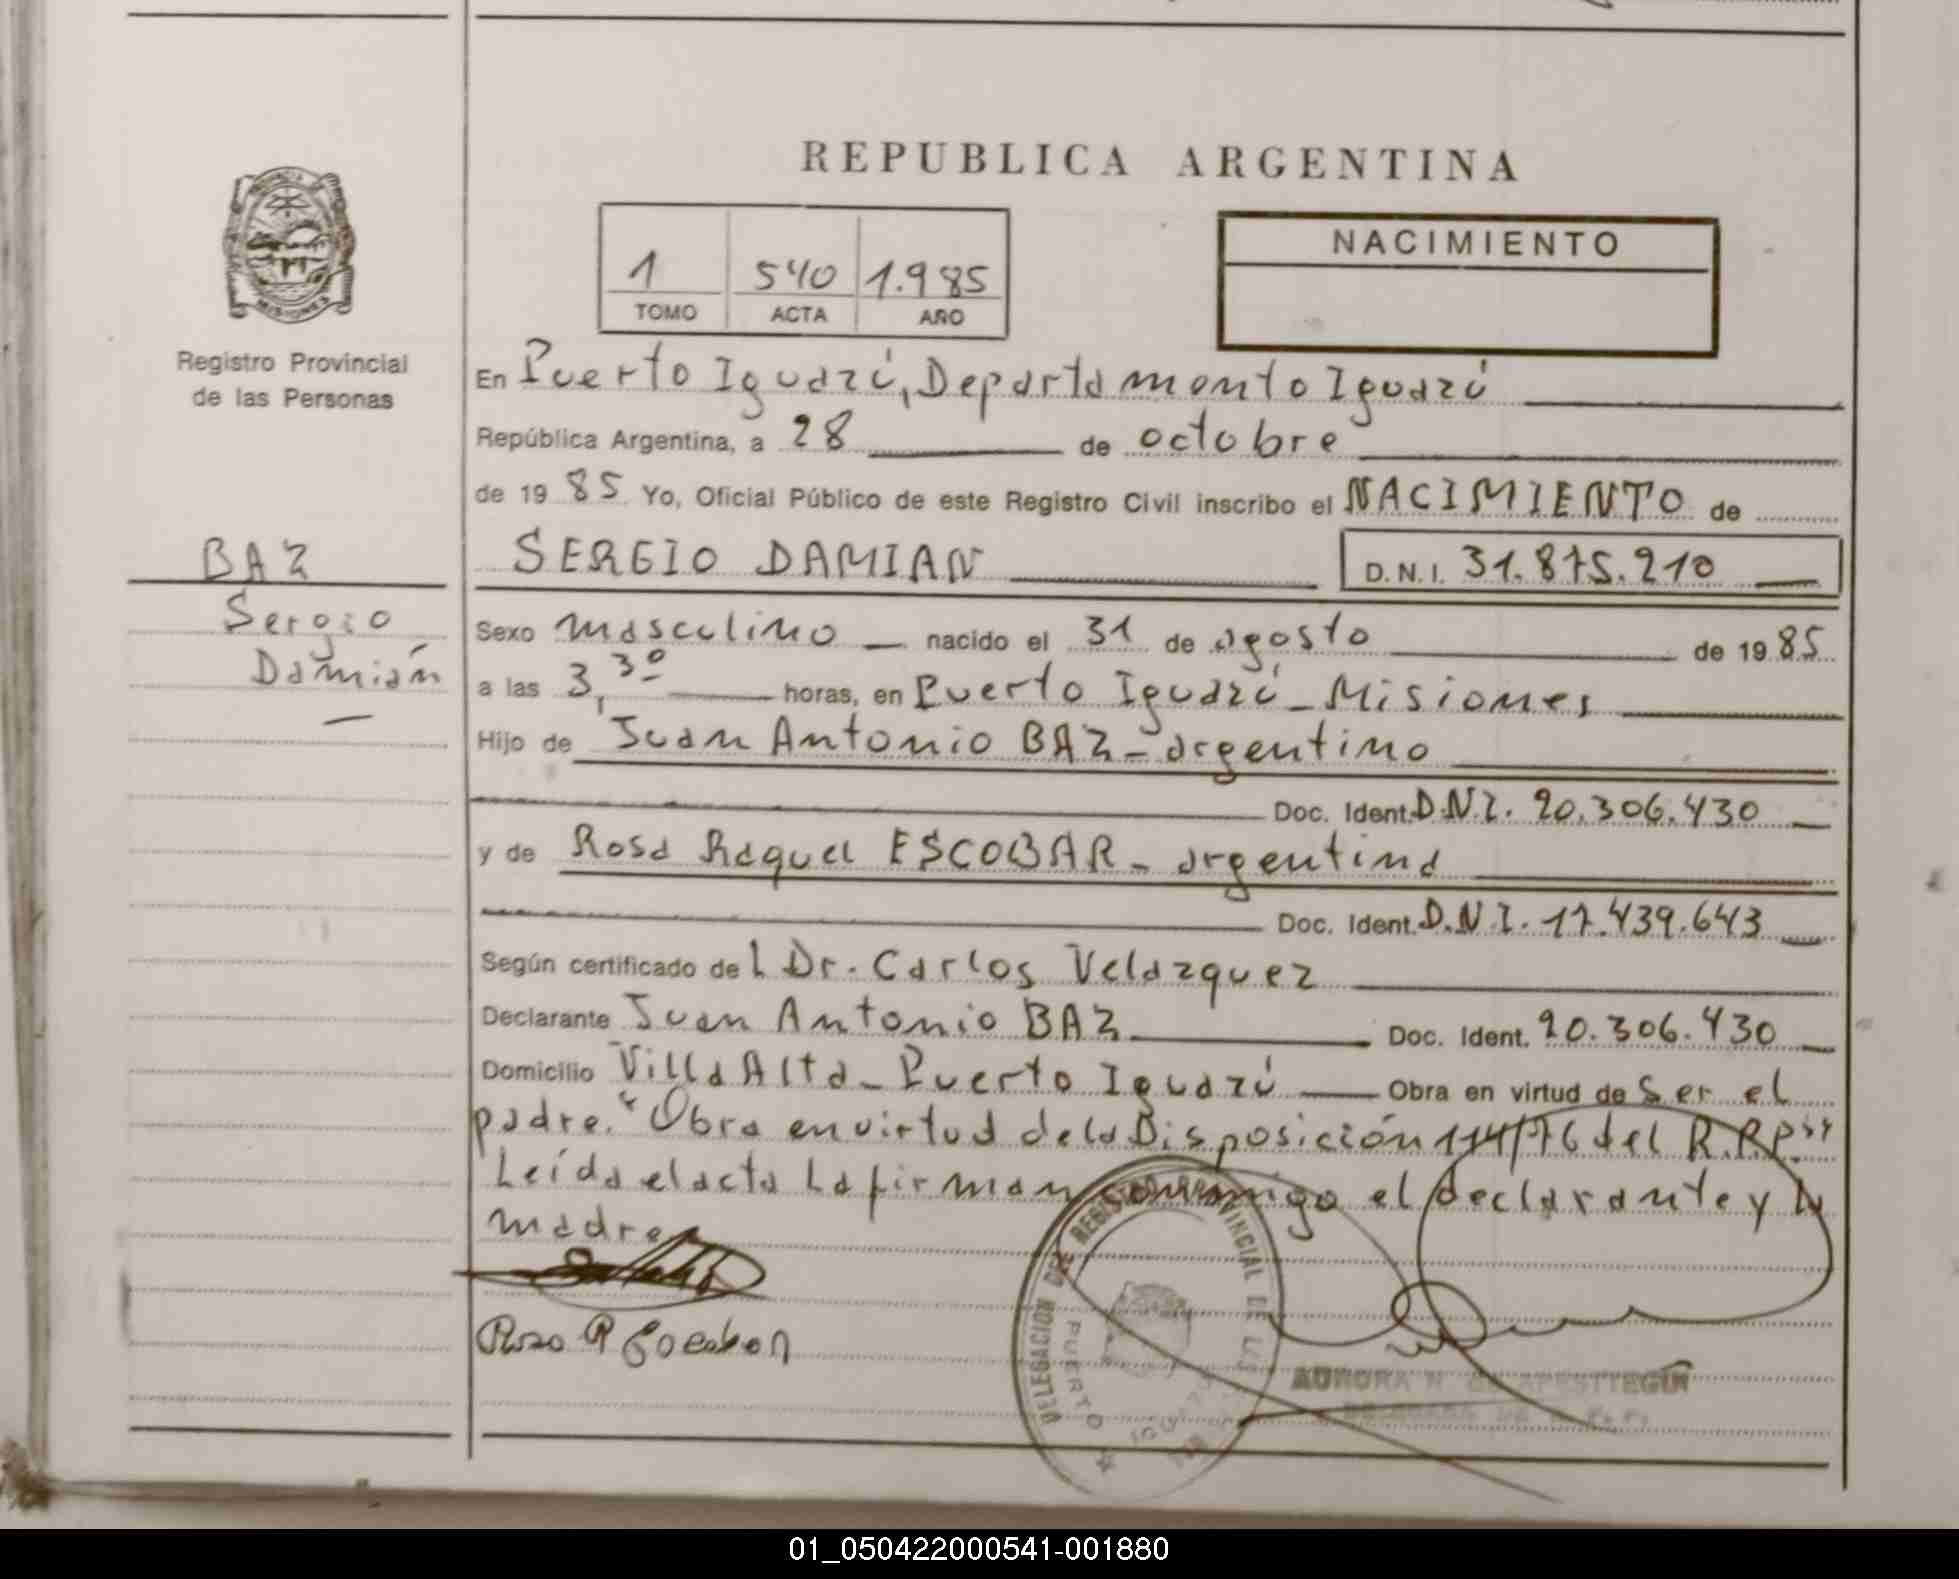 REPUBLICA ARGENTINA
PROVINCIA DE
MISIONES
Registro Provincial
de las Personas
1 540 1.985
TOMO ACTA AÑO
NACIMIENTO
En Puerto Iguazú, Departamento Iguazú
República Argentina, a 28 de octobre
de 19 85 Yo, Oficial Público de este Registro Civil inscribo el NACIMIENTO de
BAZ
Sergio
Damián
SERGIO DAMIAN D.N.I. 31.875.210
Sexo masculino nacido el 31 de agosto de 19 85
a las 3,30 horas, en Puerto Iguazú - Misiones
Hijo de Juan Antonio BAZ - argentino
Doc. Ident. D.N.I. 20.306.430
y de Rosa Raquel ESCOBAR - argentina
Doc. Ident. D.N.I. 17.439.643
Según certificado del Dr. Carlos Velazquez
Declarante Juan Antonio BAZ Doc. Ident. 20.306.430
Domicilio Villa Alta - Puerto Iguazú Obra en virtud de ser el
padre. "Obra en virtud de la Disposición 114/76 del R.P.P."
Leída el acta la firman conmigo el declarante y la
madre
Rosa R Escobar
DELEGACION DEL REGISTRO PROVINCIAL DE LAS
PUERTO IGUAZU
AURORA N. DE APESTTEGIN
01_050422000541-001880